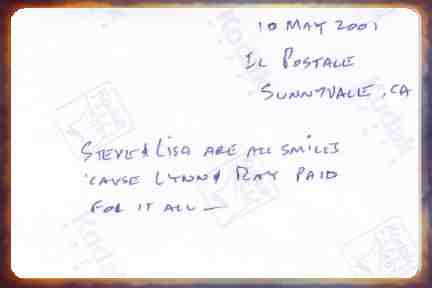 10 MAY 2001
IL POSTALE
SUNNYVALE, CA
STEVE & LISA ARE ALL SMILES
'CAUSE LYNN & RAY PAID
FOR IT ALL —
Kodak
Kodak
Kodak
Kodak
Kodak